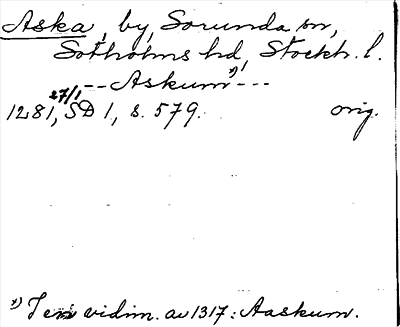 Aska, by, Sorunda sn,
Sotholms hd, Stockh. l.
-- Askum¹⁾ ---
1281, 27/1 SD 1, s. 579. orig.
¹⁾ I en vidim. av 1317: Aaskum.